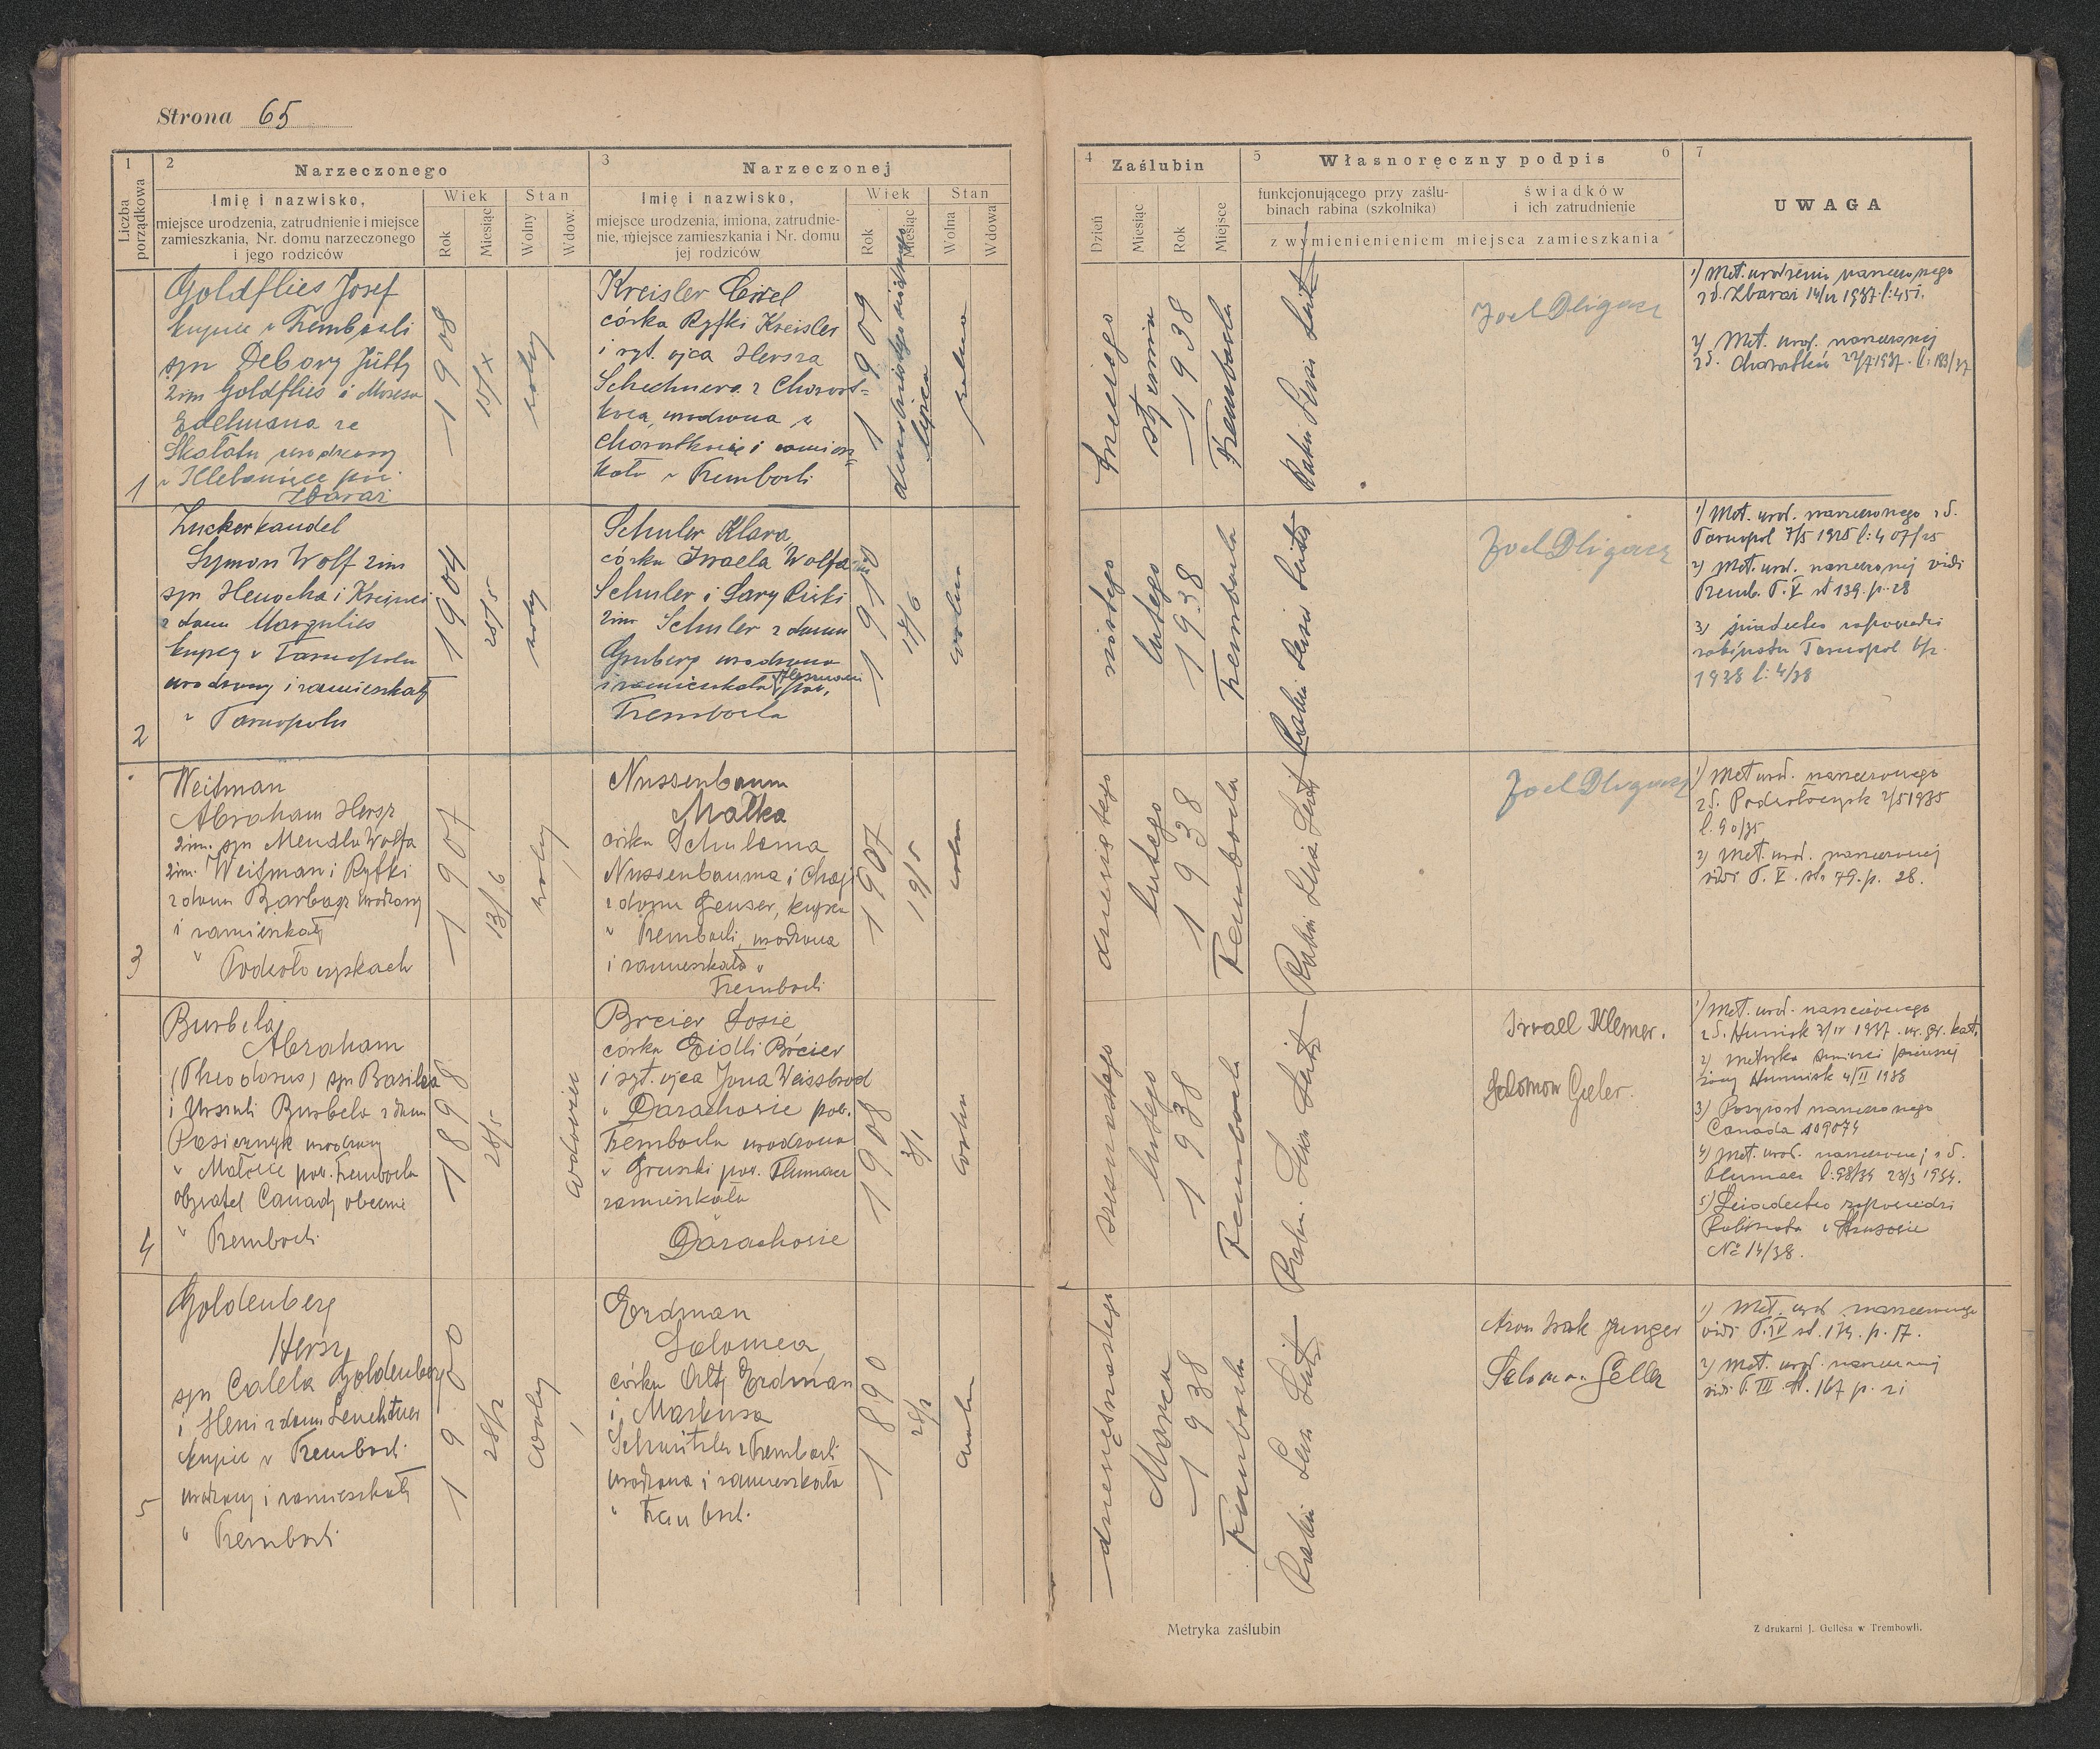 Strona 65
1 Liczba porządkowa
2 Narzeczonego
Imię i nazwisko,
miejsce urodzenia, zatrudnienie i miejsce
zamieszkania, Nr. domu narzeczonego
i jego rodziców
Wiek
Rok
Miesiąc
Stan
Wolny
Wdow.
3 Narzeczonej
Imię i nazwisko,
miejsce urodzenia, imiona, zatrudnie-
nie, miejsce zamieszkania i Nr. domu
jej rodziców
Wiek
Rok
Miesiąc
Stan
Wolna
Wdowa
4 Zaślubin
Dzień
Miesiąc
Rok
Miejsce
5 Własnoręczny podpis 6
funkcjonującego przy zaślu-
binach rabina (szkolnika)
świadków
i ich zatrudnienie
z wymienienieniem miejsca zamieszkania
7
UWAGA
1
Goldflies Josef
kupiec w Trembowli
syn Debory Jütty
2im Goldflies i Mozesa
Edelmana ze
Skałatu urodzony
w Hlebowice
Zbaraż
1908
15/X
wolny
Kreisler Cirel
córka Ryfki Kreisler
i ojca Hersza
Schechnera z Chorost=
kowa, urodzona w
Chorostkowie i zamiesz=
kała w Trembowli
1909
lipca
wolna
trzeciego
stycznia
1938
Trembowla
Joel Dligacz
1) Met. urodzenia narzeczonego
Zbaraż 1937
2) Met. urodz. narzeczonej
Chorostków 1937
2
Zuckerkandel
Szymon Wolf 2im
syn Henocha i Krejnci
z domu Margulies
kupcy w Tarnopolu
urodzony i zamieszkały
w Tarnopolu
1904
20/5
wolny
Schuler Klara,
córka Israela Wolfa
Schuler i Sary Rifki
2im Schuler z domu
Grnberg urodzona
i zamieszkała
Trembowla
1910
17/6
wolna
szóstego
lutego
1938
Trembowla
Joel Dligacz
1) Met. urod. narzeczonego
Tarnopol 7/5 1925 l: 407/25
2) Met. urod. narzeczonej vidi
Tremb. T. V st 139. p. 28
3) świadectwo zapowiedzi
rabinatu Tarnopol
1938 l: 4/38
3
Weitman
Abraham Hersz
2im. syn Mendla Wolfa
2im. Weitman i Ryfki
z domu urodzony
i zamieszkały
w Podwołoczyskach
1907
13/6
wolny
Nussenbaum
Malka
córka Schuloma
Nussenbauma i Chaji
z domu Genser, kupca
w Trembowli, urodzona
i zamieszkała w
Trembowli
1907
19/5
wolna
dwunastego
lutego
1938
Trembowla
Joel Dligacz
1) Met urod. narzeczonego
Podwołoczysk 2/5 1935
l. 90/35
2) Met. urod. narzeczonej
vidi T. V. str 79. p. 28.
4
Burbela
Abraham
(Theodosus) syn Basilea
i Urszuli Burbela z domu
Pasiecznyk urodzony
w Małowie pow. Trembowla
obywatel Canady obecnie
w Trembowli
1898
28/5
wdowiec
Breier Sosie
córka Eidli Breier
i ojca Jona Weissbrod
w Darachowie pow.
Trembowla urodzona
w Gruszki pow. Tłumacz
zamieszkała
Darachowie
1908
3/1
wolna
lutego
1938
Trembowla
Israel Klemer.
Salomon Geler.
1) Met. urod. narzeczonego
1937. gr. kat.
2) metryka śmierci pierwszej
żony 4/II 1938
3) Paszport narzeczonego
Canada 109074
4) Met. urod. narzeczonej
Tłumacz l: 98/34 28/3 1934.
5) Świadectwo zapowiedzi
Rabinatu
No 14/38.
5
Goldenberg
Hersz
syn Calela Goldenberg
i Heni z domu Leuchtner
kupiec w Trembowli
urodzony i zamieszkały
w Trembowli
1900
28/2
wolny
Erdman
Salomea,
córka Erdman
i Markusa
Schnitzler z Trembowli
urodzona i zamieszkała
w Trembowli.
1890
wolna
dziewiętnastego
Marca
1938
Trembowla
Aron Izak Junger
Salomon Geller
1) Met. urod narzeczonego
vidi T. IV st. 174. p. 17.
2) Met. urod. narzeczonej
vidi T. III st. 167 p. 21
Metryka zaślubin
Z drukarni J. Gellesa w Trembowli.